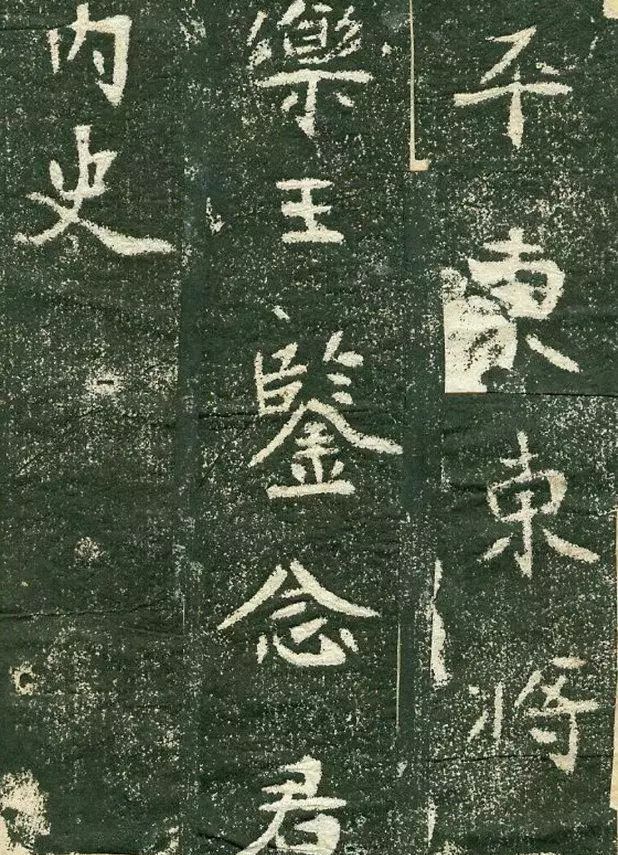 平東將
樂王鑒念君
内史